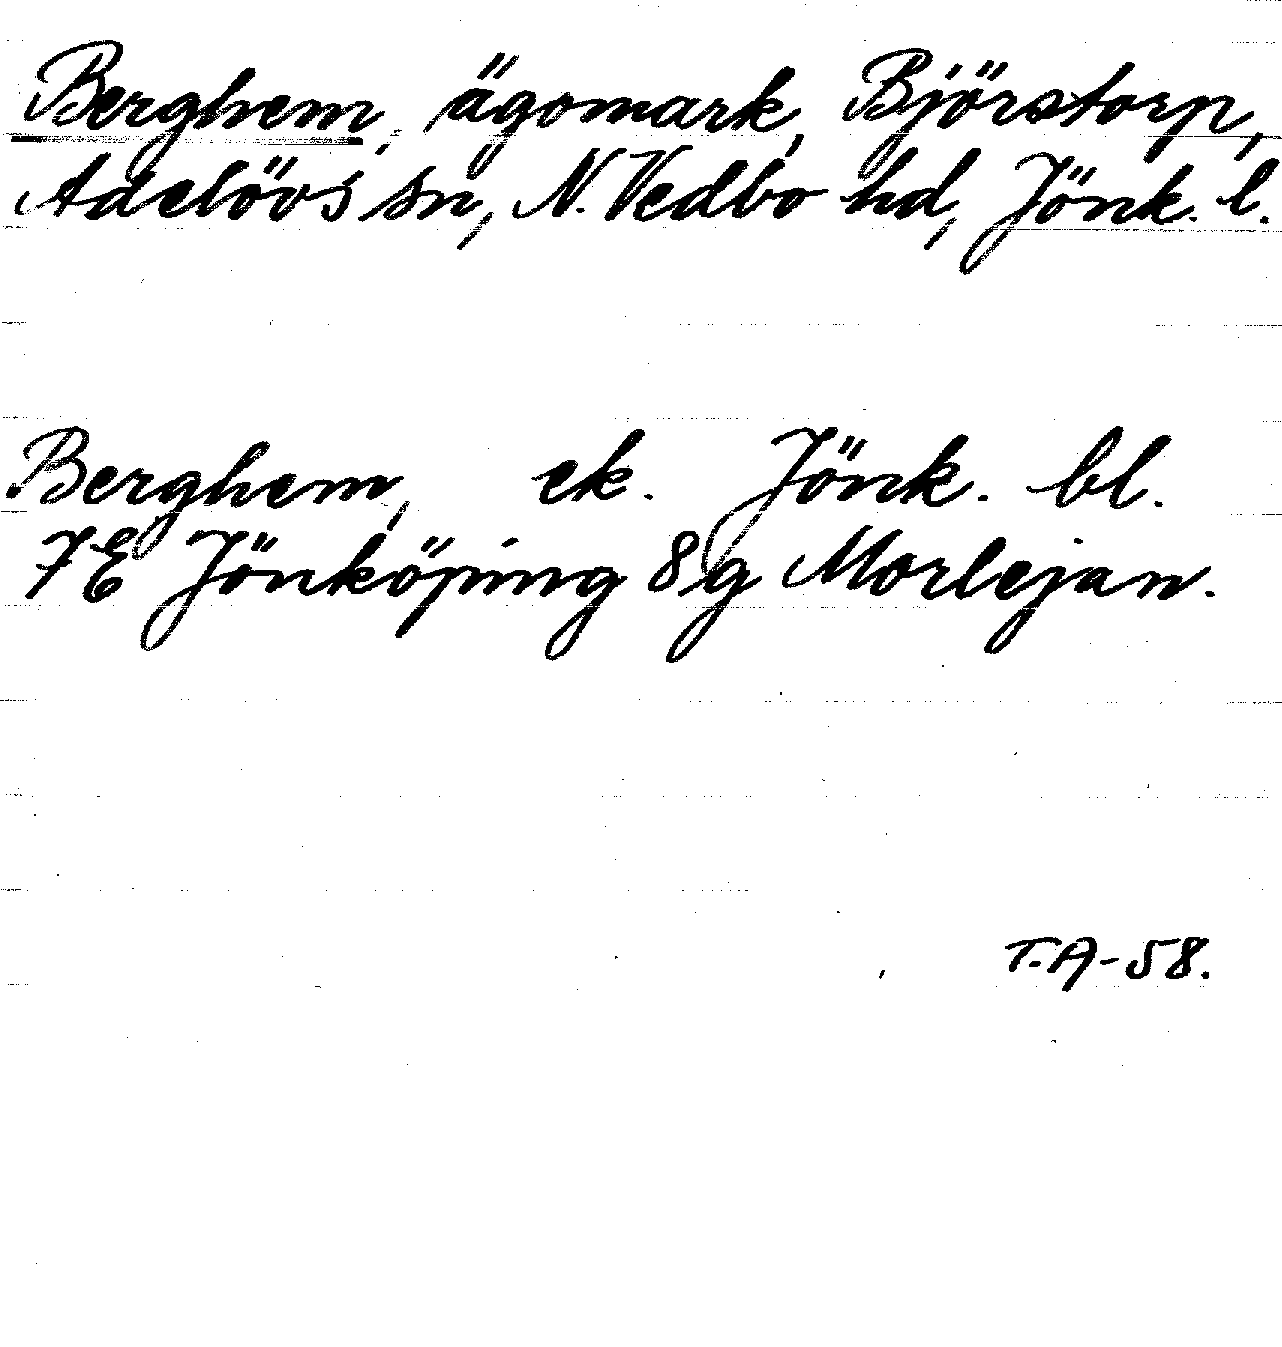 Berghem, ägomark, Björstorp,
Adelövs sn, N. Vedbo hd, Jönk. l.
Berghem, ek. Jönk. bl.
7E Jönköping 8g Morlejan.
T.A-58.